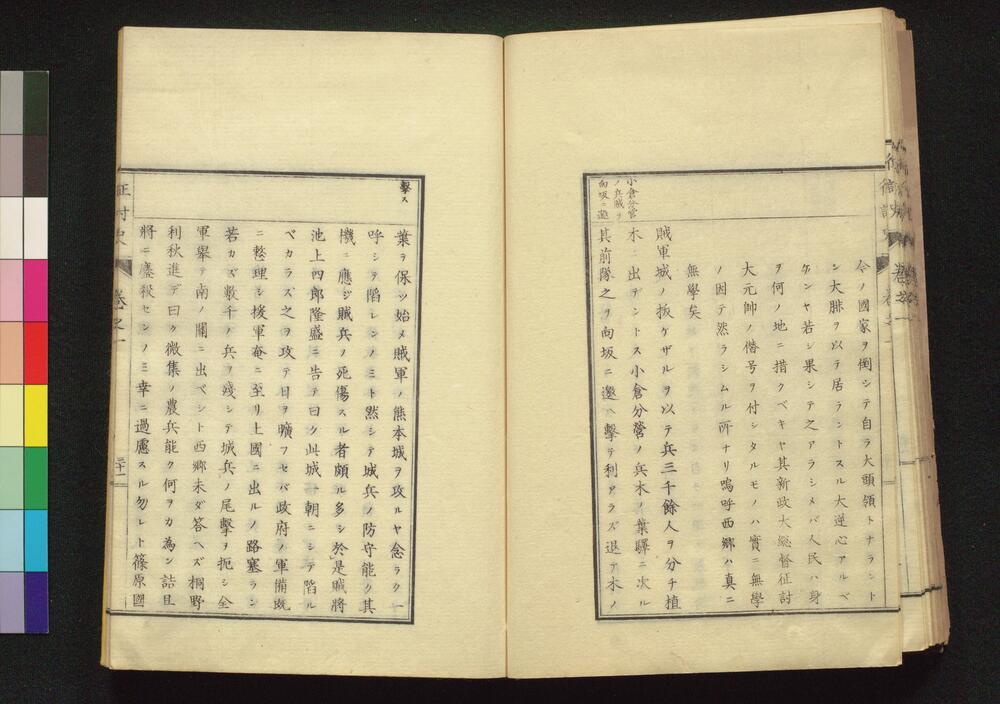 令ノ國家ヲ倒シテ自ラ大頭領トナラント
ン大胖ヲ以テ居ラントスル大逆心アルベ
ケンヤ若シ果シテ之アラシメバ人民ハ身
ヲ何ノ地ニ措クベキヤ其新政大総督征討
大元帥ノ僭号ヲ付シタルモノハ實ニ無學
ノ因テ然ラシムル所ナリ嗚呼西郷ハ真ニ
無學矣
賊軍城ノ抜ケザルヲ以テ兵三千餘人ヲ分チ植
木ニ出デントス小倉分營ノ兵木ノ葉驛ニ次ル
其前隊之ヲ向坂ニ邀ヘ撃テ利アラズ退テ木ノ
小倉分官
ノ兵賊ヲ
向坂ニ邀
撃ス
葉ヲ保ツ始メ賊軍ノ熊本城ヲ攻ルヤ念ラク一
呼シテ陷レンノミト然シテ城兵ノ防守能ク其
機ニ應ジ賊兵ノ死傷スル者頗ル多シ於是賊將
池上四郎隆盛ニ告テ曰ク此城一朝ニシテ陷ル
ベカラズ之ヲ攻テ日ヲ曠フセバ政府ノ軍備既
ニ整理シ援軍奄ニ至リ上國ニ出ルノ路塞ラン
若カズ數千ノ兵ヲ殘シテ城兵ノ尾撃ヲ扼シ全
軍舉テ南ノ關ニ出ベシト西郷未ダ答ヘズ桐野
利秋進デ曰ク微集ノ農兵能ク何ヲカ為ン詰旦
將ニ鏖殺センノミ幸ニ過慮スル勿レト篠原國
征討史
卷之一
三十一